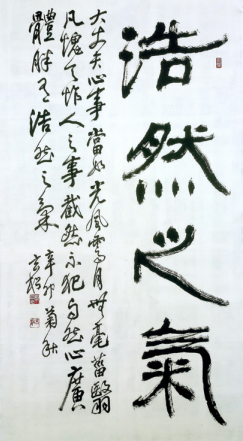 浩然之氣
大丈夫心事當如光風霽月無毫菑翳
凡愧天怍人之事截然不犯自然心廣
體胖有浩然之氣
辛卯菊秋